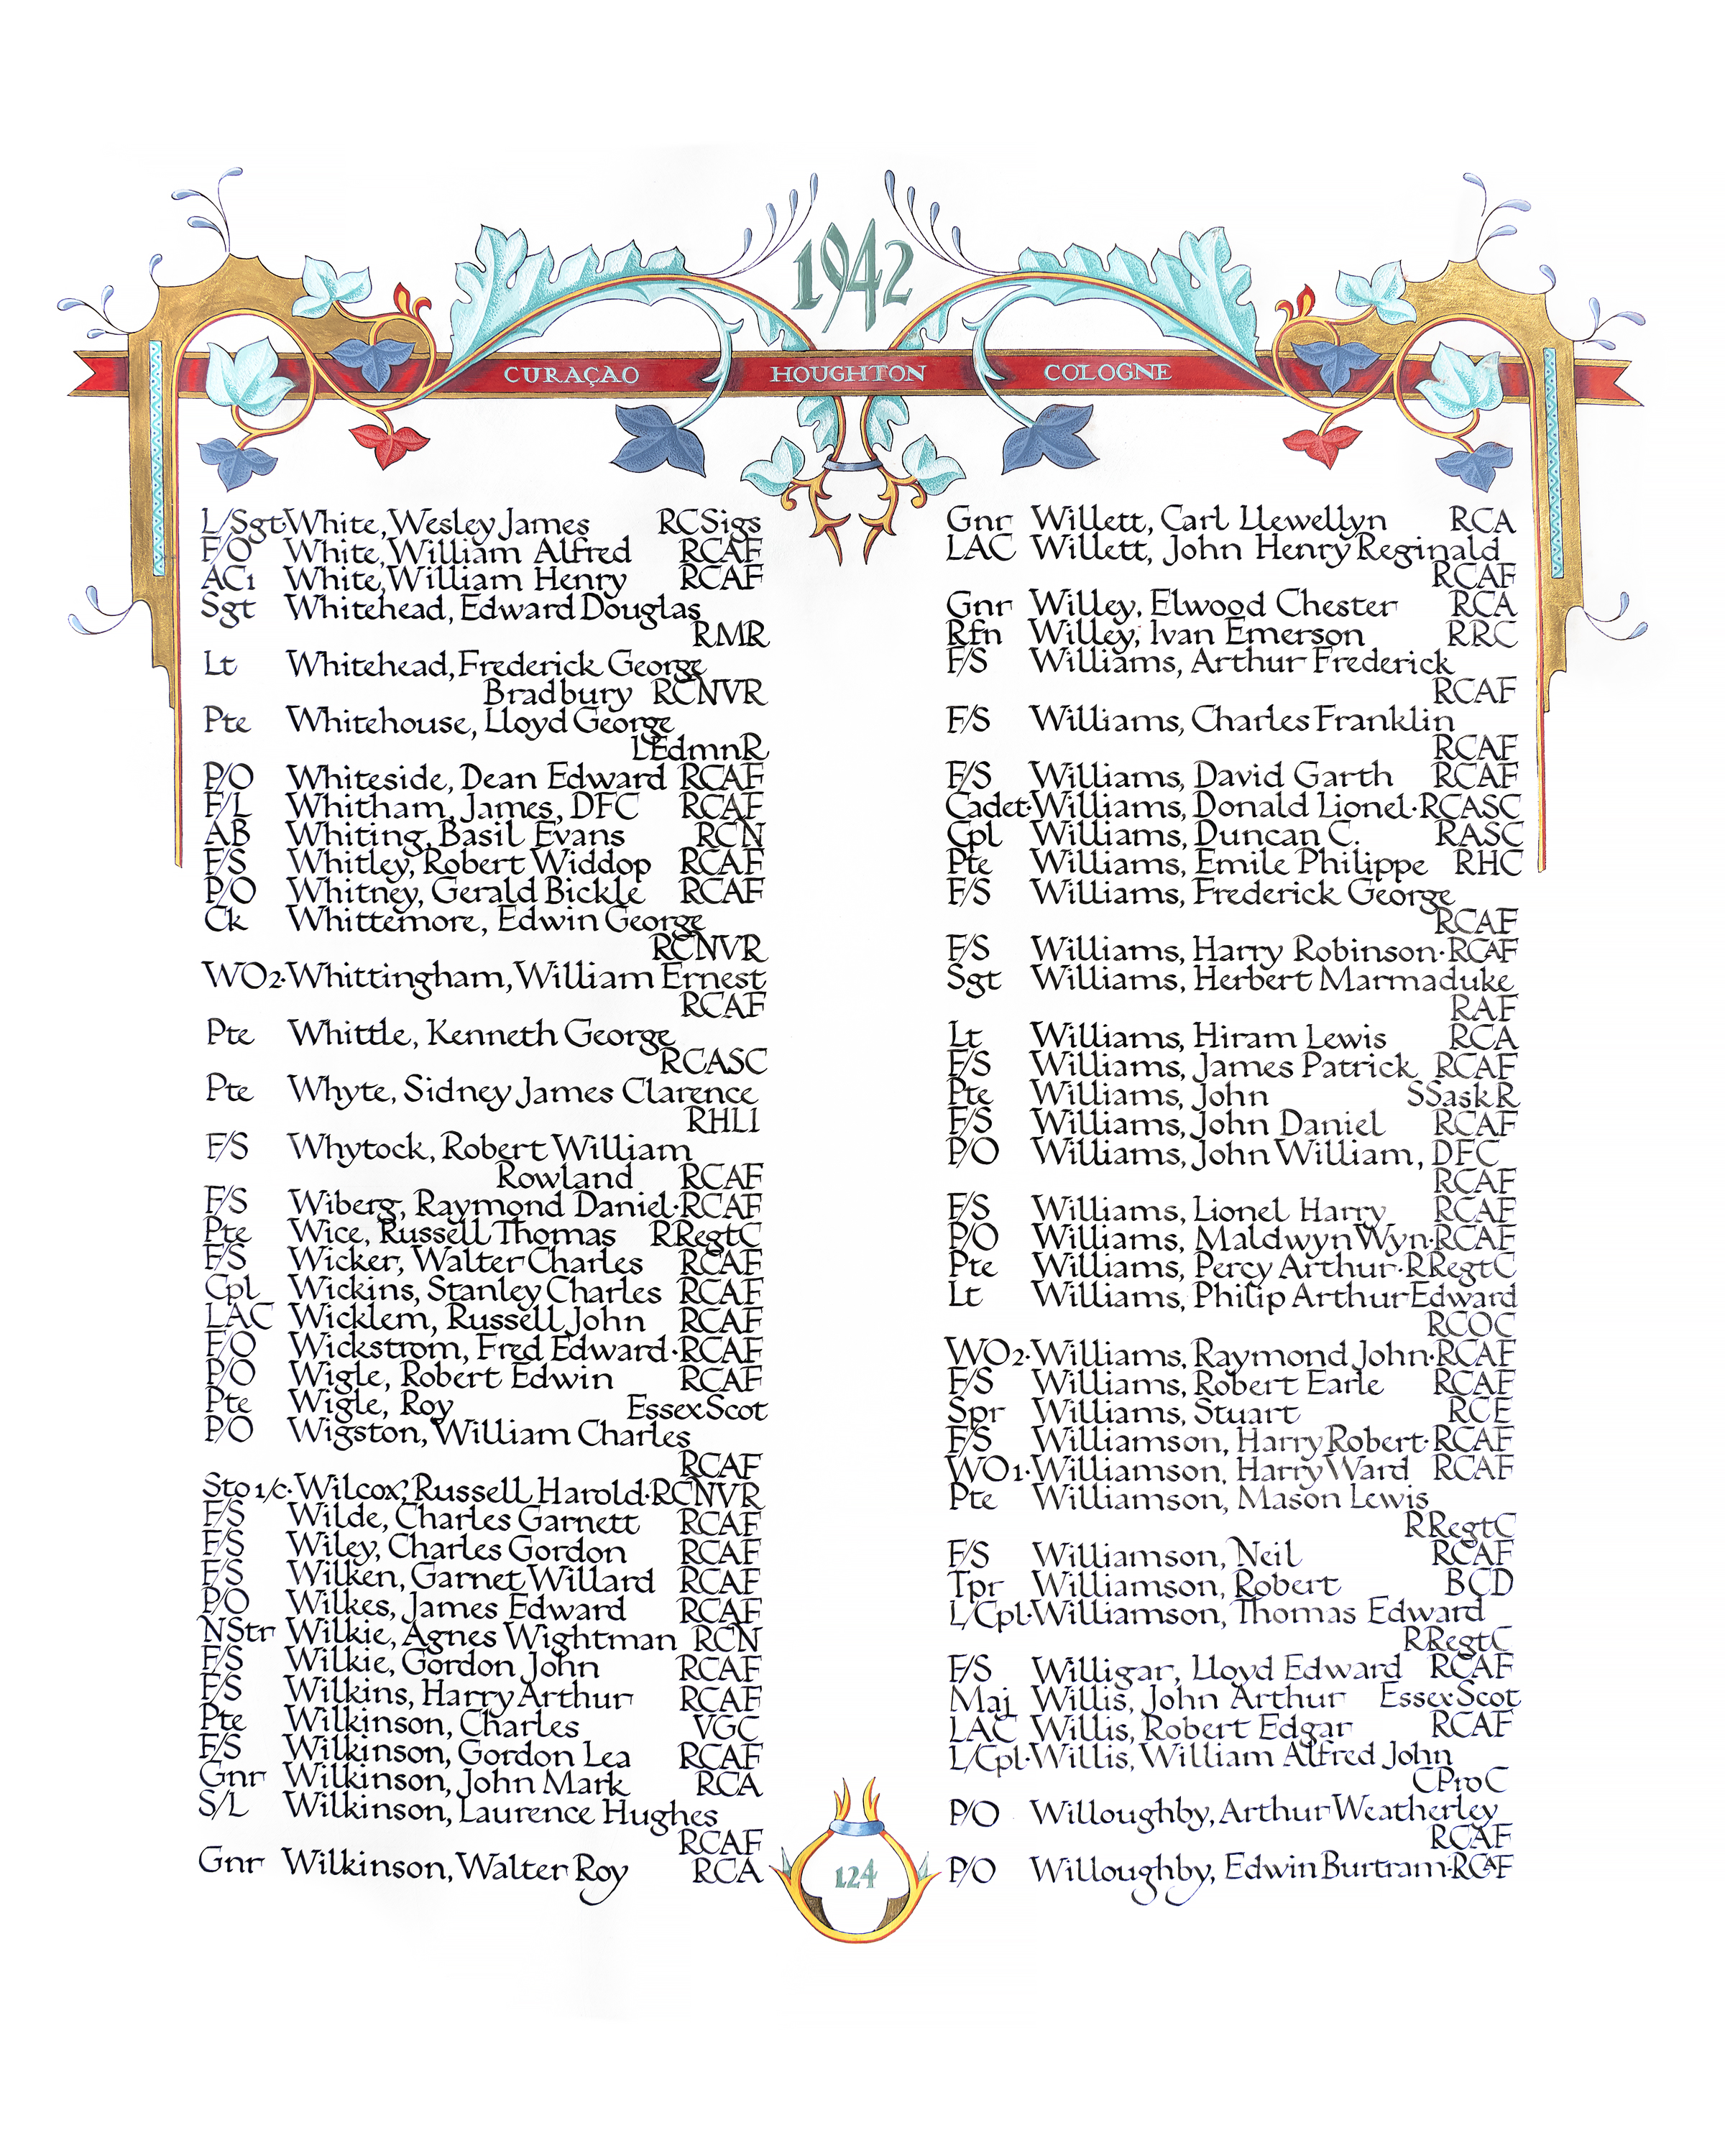 1942
CURAÇAO HOUGHTON COLOGNE
L/Sgt·White, Wesley James RCSigs
F/O White, William Alfred RCAF
AC1 White, William Henry RCAF
Sgt Whitehead, Edward Douglas
RMR
Lt Whitehead, Frederick George
Bradbury RCNVR
Pte Whitehouse, Lloyd George
LEdmnR
P/O Whiteside, Dean Edward RCAF
F/L Whitham, James, DFC RCAF
AB Whiting, Basil Evans RCN
F/S Whitley, Robert Widdop RCAF
P/O Whitney, Gerald Bickle RCAF
Ck Whittemore, Edwin George
RCNVR
WO2·Whittingham, William Ernest
RCAF
Pte Whittle, Kenneth George
RCASC
Pte Whyte, Sidney James Clarence
RHLI
F/S Whytock, Robert William
Rowland RCAF
F/S Wiberg, Raymond Daniel·RCAF
Pte Wice, Russell Thomas RRegtC
F/S Wicker, Walter Charles RCAF
Cpl Wickins, Stanley Charles RCAF
LAC Wicklem, Russell John RCAF
F/O Wickstrom, Fred Edward·RCAF
P/O Wigle, Robert Edwin RCAF
Pte Wigle, Roy EssexScot
P/O Wigston, William Charles
RCAF
Sto 1/c·Wilcox, Russell Harold·RCNVR
F/S Wilde, Charles Garnett RCAF
F/S Wiley, Charles Gordon RCAF
F/S Wilken, Garnet Willard RCAF
P/O Wilkes, James Edward RCAF
NStr Wilkie, Agnes Wightman RCN
F/S Wilkie, Gordon John RCAF
F/S Wilkins, Harry Arthur RCAF
Pte Wilkinson, Charles VGC
F/S Wilkinson, Gordon Lea RCAF
Gnr Wilkinson, John Mark RCA
S/L Wilkinson, Laurence Hughes
RCAF
Gnr Wilkinson, Walter Roy RCA
Gnr Willett, Carl Llewellyn RCA
LAC Willett, John Henry Reginald
RCAF
Gnr Willey, Elwood Chester RCA
Rfn Willey, Ivan Emerson RRC
F/S Williams, Arthur Frederick
RCAF
F/S Williams, Charles Franklin
RCAF
F/S Williams, David Garth RCAF
Cadet·Williams, Donald Lionel·RCASC
Cpl Williams, Duncan C. RASC
Pte Williams, Emile Philippe RHC
F/S Williams, Frederick George
RCAF
F/S Williams, Harry Robinson·RCAF
Sgt Williams, Herbert Marmaduke
RAF
Lt Williams, Hiram Lewis RCA
F/S Williams, James Patrick RCAF
Pte Williams, John SSaskR
F/S Williams, John Daniel RCAF
P/O Williams, John William, DFC
RCAF
F/S Williams, Lionel Harry RCAF
P/O Williams, Maldwyn Wyn·RCAF
Pte Williams, Percy Arthur·RRegtC
Lt Williams, Philip Arthur Edward
RCOC
WO2·Williams, Raymond John·RCAF
F/S Williams, Robert Earle RCAF
Spr Williams, Stuart RCE
F/S Williamson, Harry Robert·RCAF
WO1·Williamson, Harry Ward RCAF
Pte Williamson, Mason Lewis
RRegtC
F/S Williamson, Neil RCAF
Tpr Williamson, Robert BCD
L/Cpl·Williamson, Thomas Edward
RRegtC
F/S Willigar, Lloyd Edward RCAF
Maj Willis, John Arthur EssexScot
LAC Willis, Robert Edgar RCAF
L/Cpl·Willis, William Alfred John
CProC
P/O Willoughby, Arthur Weatherley
RCAF
P/O Willoughby, Edwin Burtram·RCAF
124